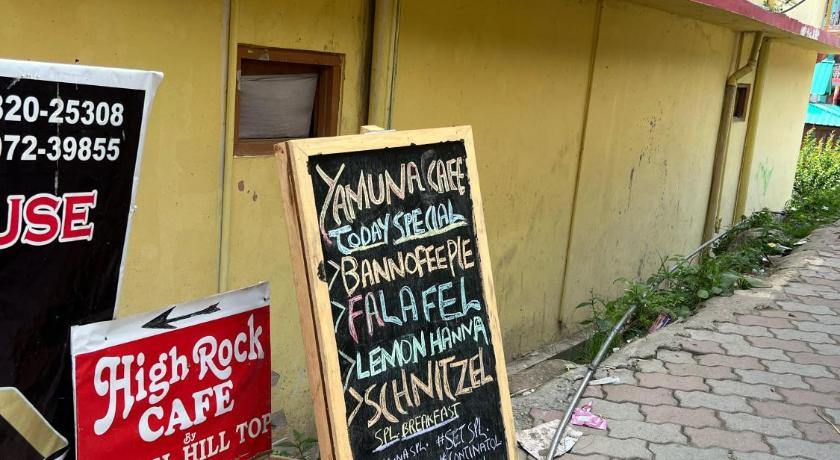 820-25308
972-39855
USE
High Rock
CAFE
By
HILL TOP
YAMUNA CAFE
TODAY SPECIAL
>BANNOFEE PIE
>FALAFEL
>LEMON HANNA
>SCHNITZEL
SPL. BREAKFAST
SPL. #SET SPL.
#CONTINATOL